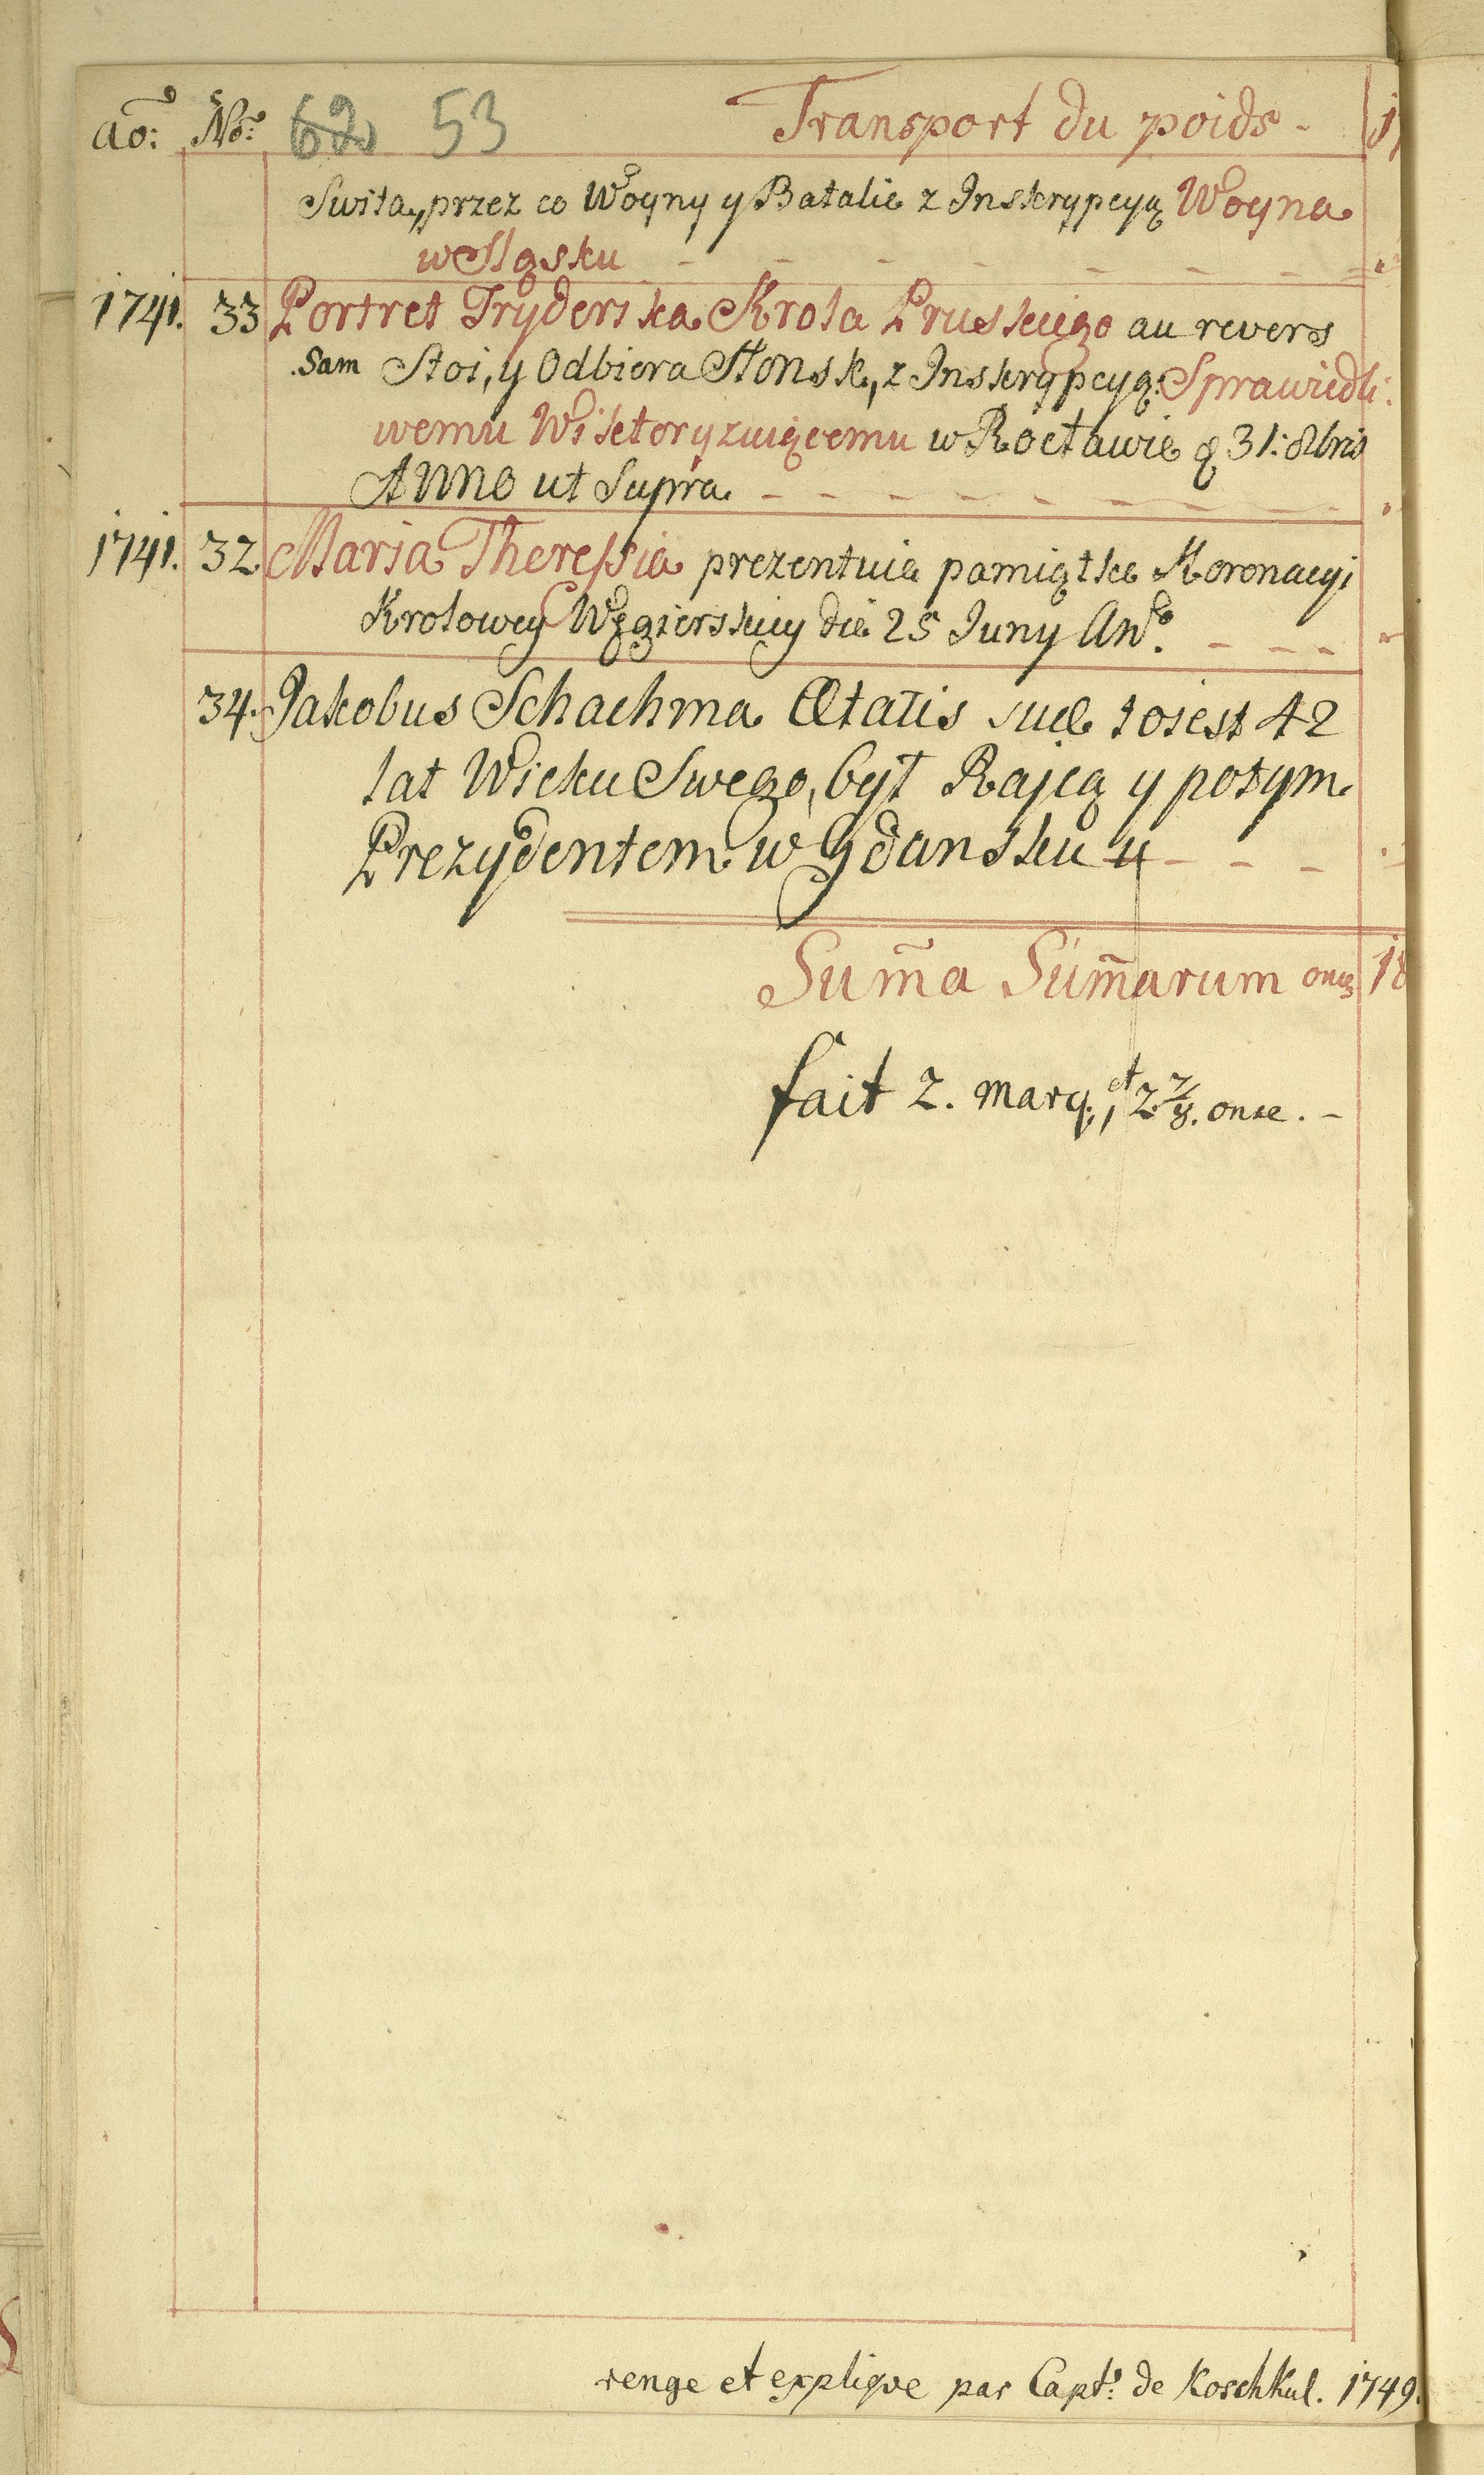 ao: No: 62 53 Transport du poids -
Swita, przez co Woyny y Batalie z Inskrypcyą Woyna
w Sląsku
1741. 33 Portret Fryderika Krola Pruskiego au revers
Sam Stoi, y Odbiera Slonsk, z Inskrypcyą: Sprawiedli:
wemu Wiktoryzuiącemu w Rocławie d 31: 8bris
Anno ut Supra.
1741. 32 Maria Theressia prezentuie pamiątke Koronacyi
Krolowey Węgierskiey die 25 Juny Ano.
34. Jakobus Schachma Ætatis suæ to iest 42
lat Wieku Swego, był Rajcą y potym
Prezydentem w Gdansku
Sum̃a Sum̃arum once 18
fait 2. marq., et 2 7/8. once. -
renge et expliqve par Capt: de Koschkul. 1749.